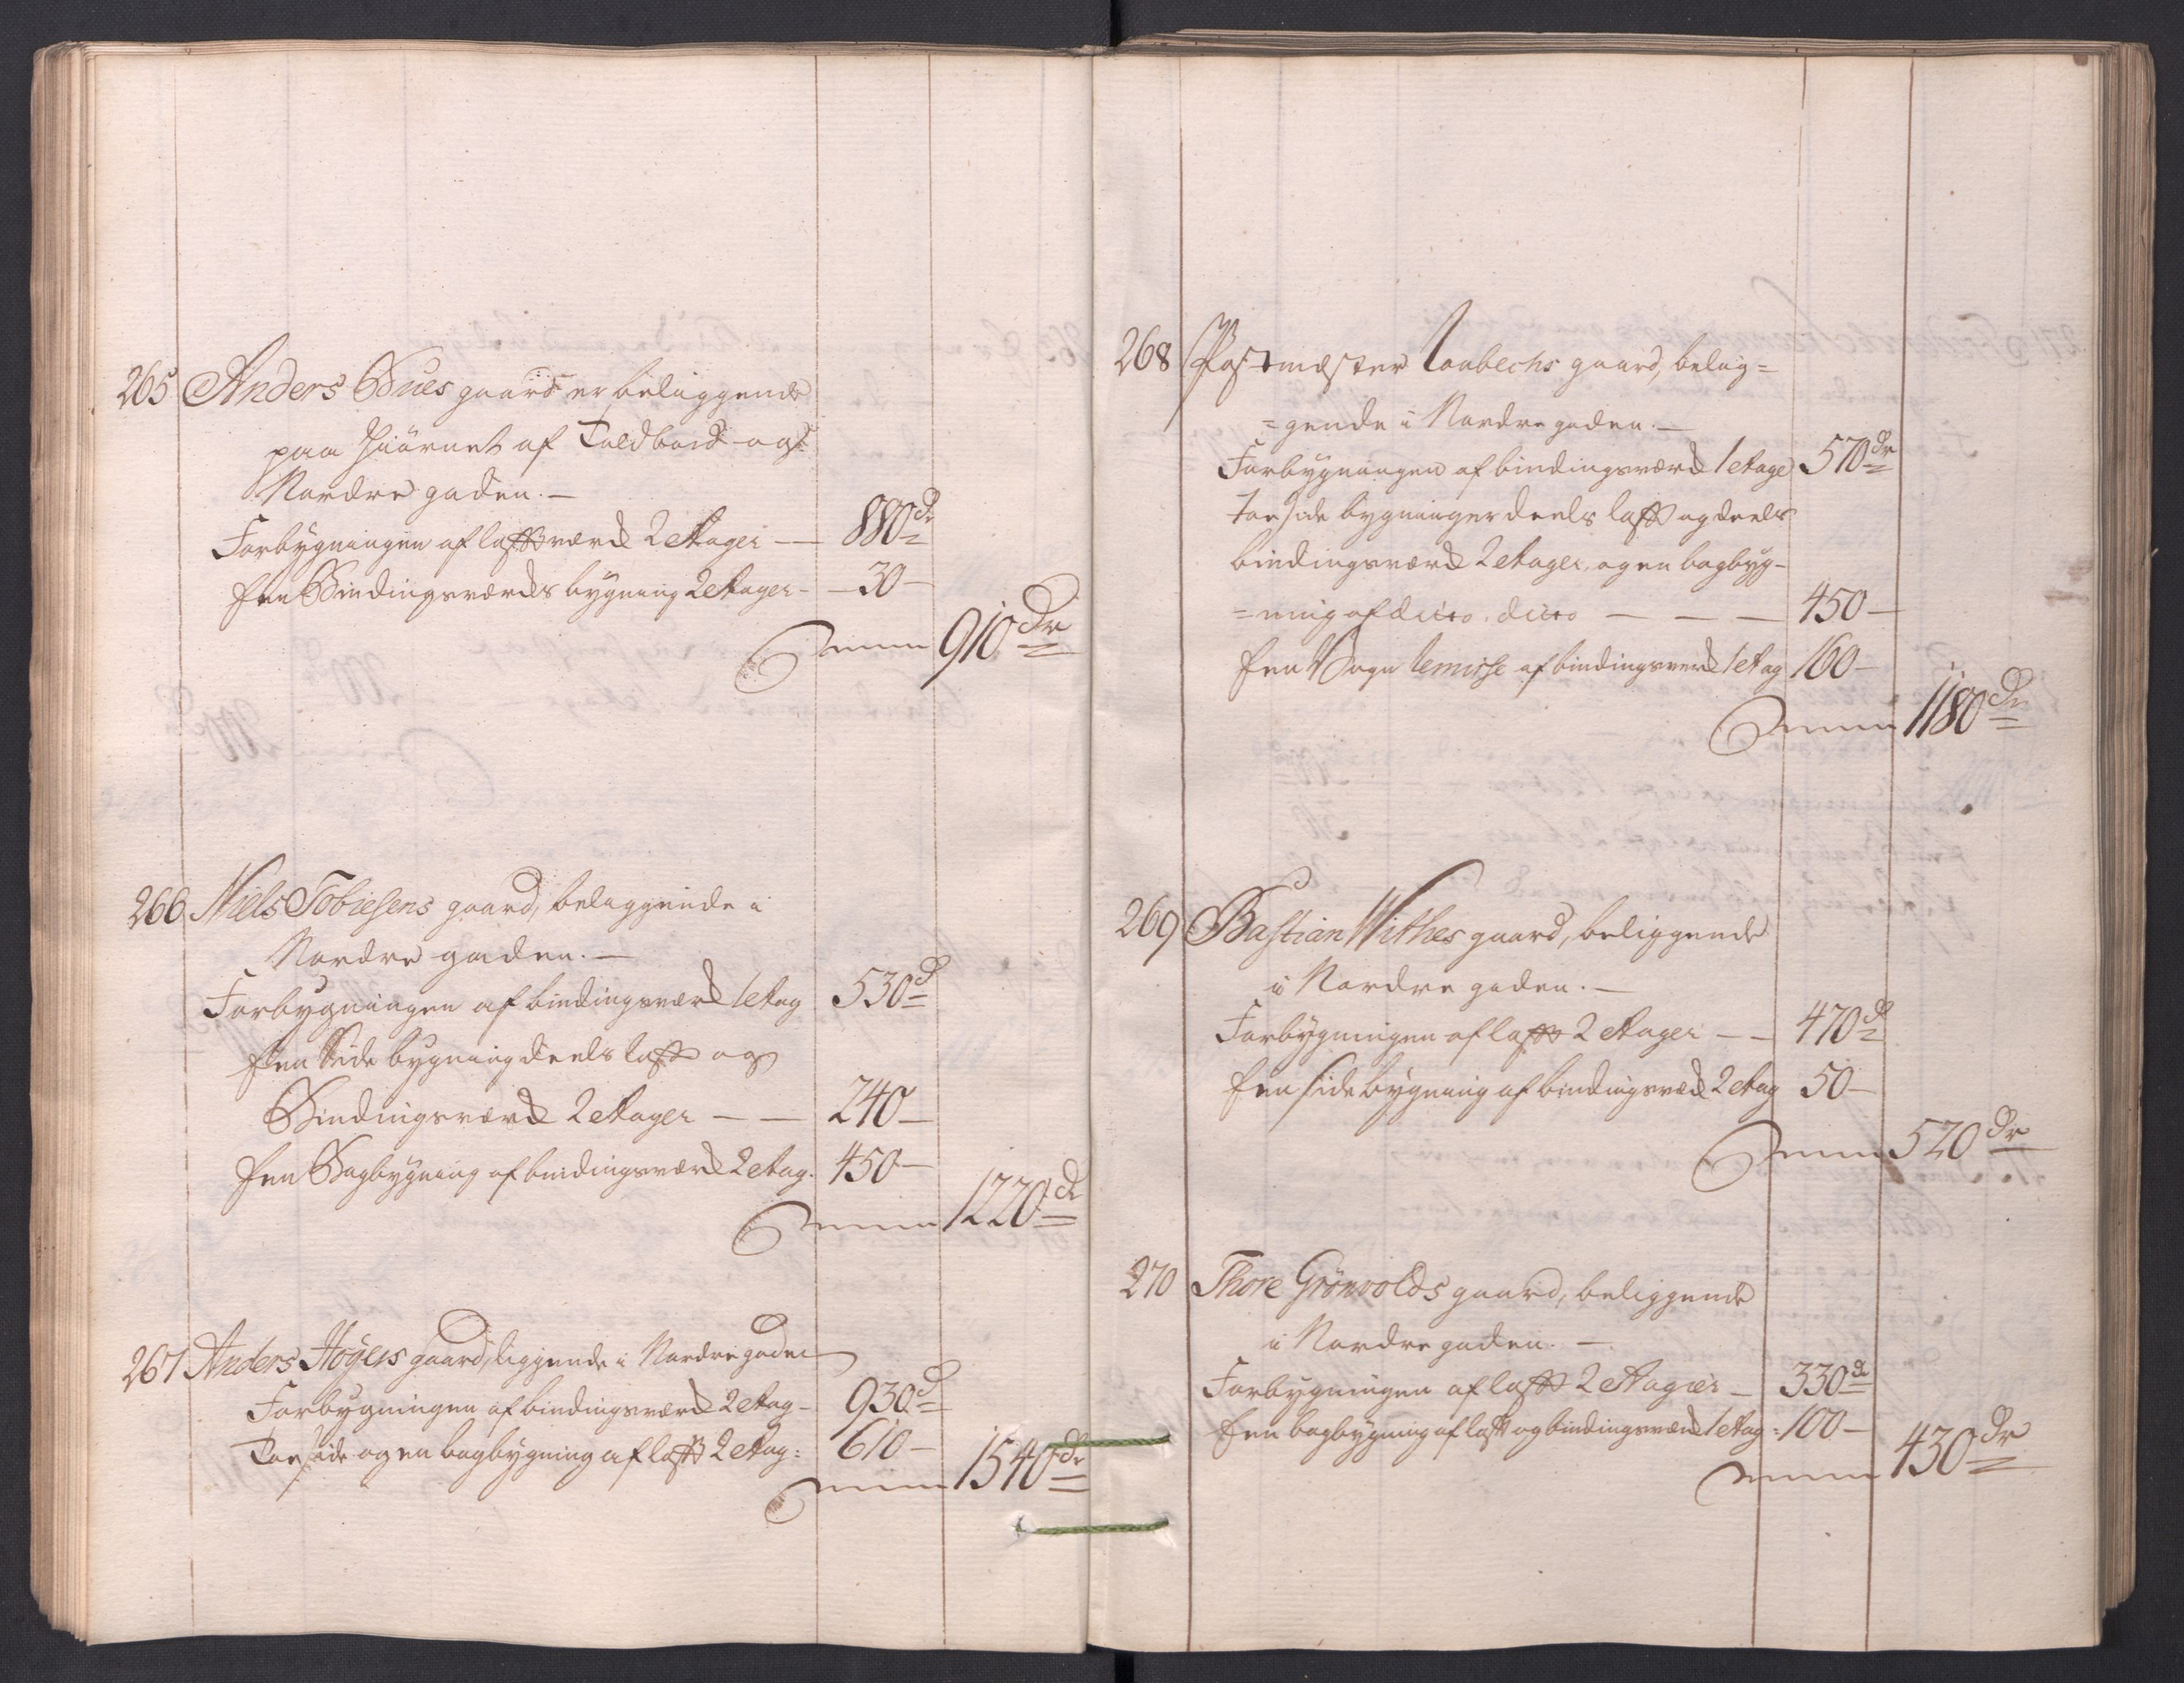 265 Anders Bues gaard er beliggende
paa Hiörnet af Toldbord- og
Nordre gaden. —
Forbygningen af laftværk 2 Etager — 880 dr
En Bindingsværks bygning 2 Etager — 30 —
Summa 910 dr
266 Niels Tobiesens gaard, beliggende i
Nordre gaden. —
Forbygningen af bindingsværk 1 Etag 530 d
En Side bygning deels laft og
Bindingsværk 2 Etager — — 240 —
En Bagbygning af bindingsværk 2 Etag. 450 —
Summa 1220 dr
267 Anders Höyers gaard, liggende i Nordre gaden
Forbygningen af bindingsværk 2 Etag — 930 d
Toe side og en bagbygning af laft 2 Etag: 610 —
Summa 1540 dr
268 Postmester gaard, belig=
=gende i Nordre gaden. —
Forbygningen af bindingsværk 1 Etage 570 dr
Toe side bygninger deels laft og deels
bindingsværk 2 Etager, og en bagbyg-
=ning af dito. dito — — — 450 —
En Vogn Remisse af bindingsverk 1 Etag 160 —
Summa 1180 dr
269 Bastian Withes gaard, beliggende
i Nordre gaden. —
Forbygningen af laft 2 Etager — — 470 d
En side bygning af bindingsværk 2 Etag 50 —
Summa 520 dr
270 Thore Grönvolds gaard, beliggende
i Nordre gaden. —
Forbygningen af laft 2 Etager — 330 d
En bagbygning af laft og bindingsværk 1 Etag: 100 —
Summa 430 dr